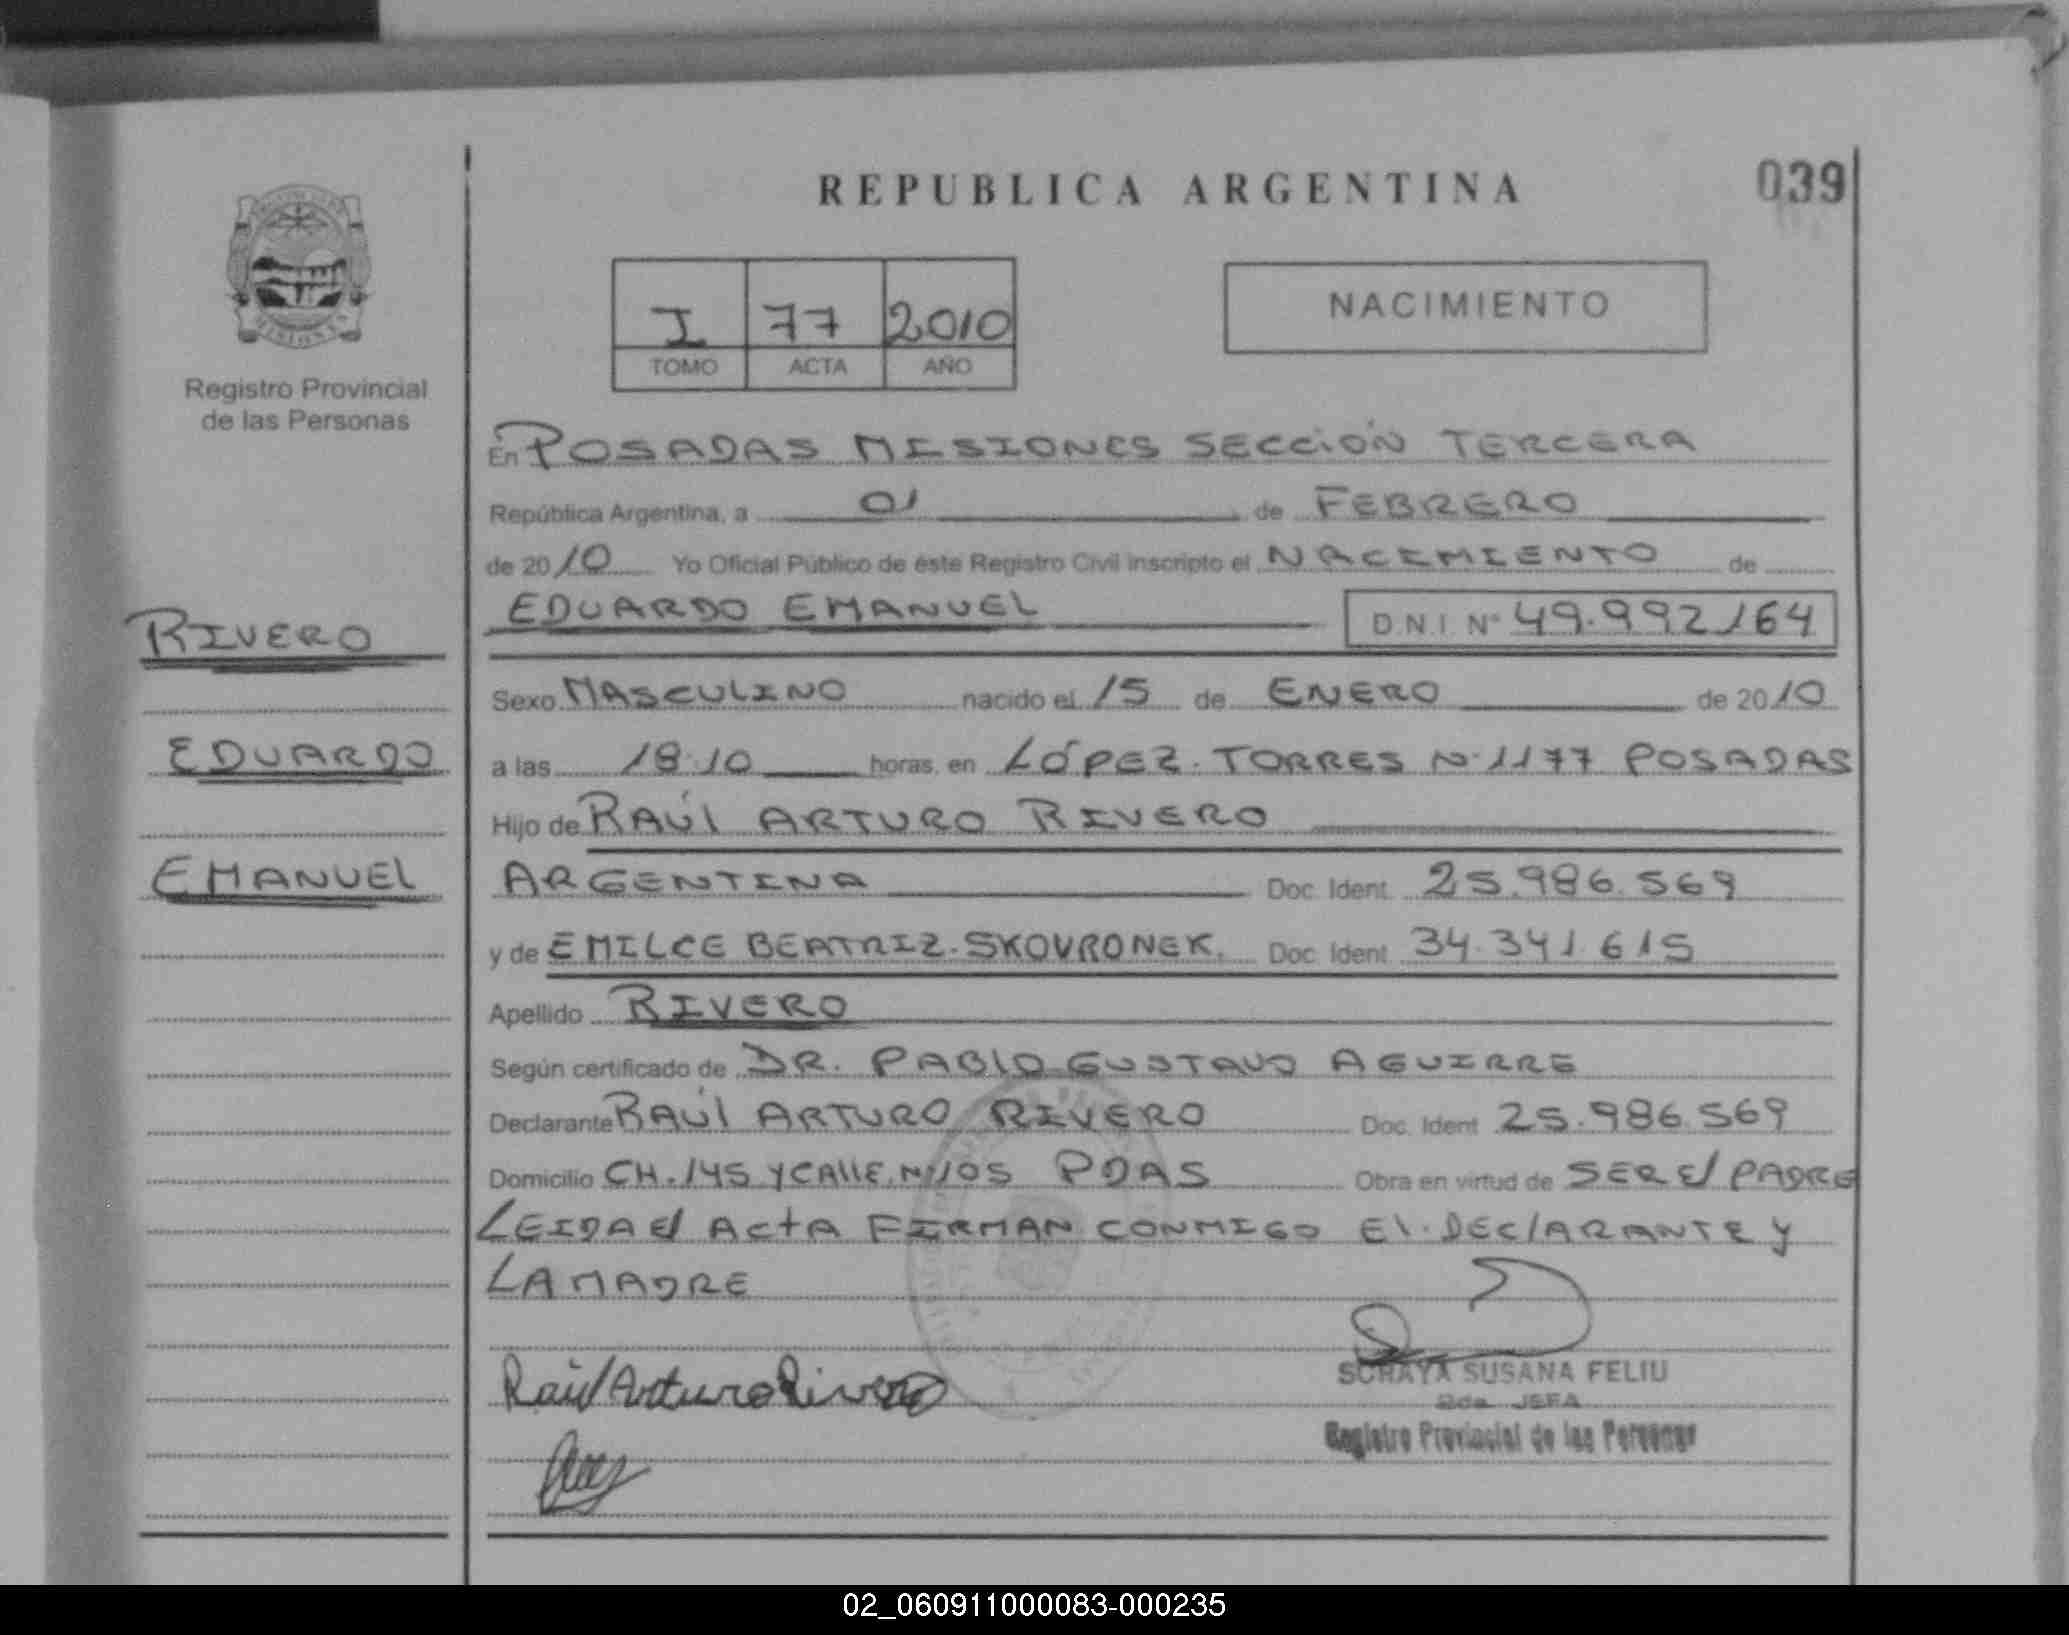 REPUBLICA ARGENTINA
039
Registro Provincial
de las Personas
I 77 2010
TOMO ACTA AÑO
NACIMIENTO
En POSADAS MISIONES SECCIÓN TERCERA
República Argentina, a 01 de FEBRERO
de 2010 Yo Oficial Público de éste Registro Civil inscripto el NACIMIENTO de
EDUARDO EMANUEL D.N.I. Nº 49.992164
RIVERO
EDUARDO
EMANUEL
Sexo MASCULINO nacido el 15 de ENERO de 2010
a las 18:10 horas, en LÓPEZ TORRES Nº 1177 POSADAS
Hijo de RAÚL ARTURO RIVERO
ARGENTINA Doc. Ident. 25.986.569
y de EMILCE BEATRIZ SKOVRONEK. Doc. Ident. 34.341.615
Apellido RIVERO
Según certificado de DR. PABLO GUSTAVO AGUIRRE
Declarante RAÚL ARTURO RIVERO Doc. Ident. 25.986.569
Domicilio CH. 145 Y CALLE Nº 105 PDAS Obra en virtud de SER El PADRE
LEIDA El ACTA FIRMAN CONMIGO El DEClARANTE Y
LA MADRE
Raúl Arturo Rivero
SORAYA SUSANA FELIU
2da. JEFA
Registro Provincial de las Personas
02_060911000083-000235